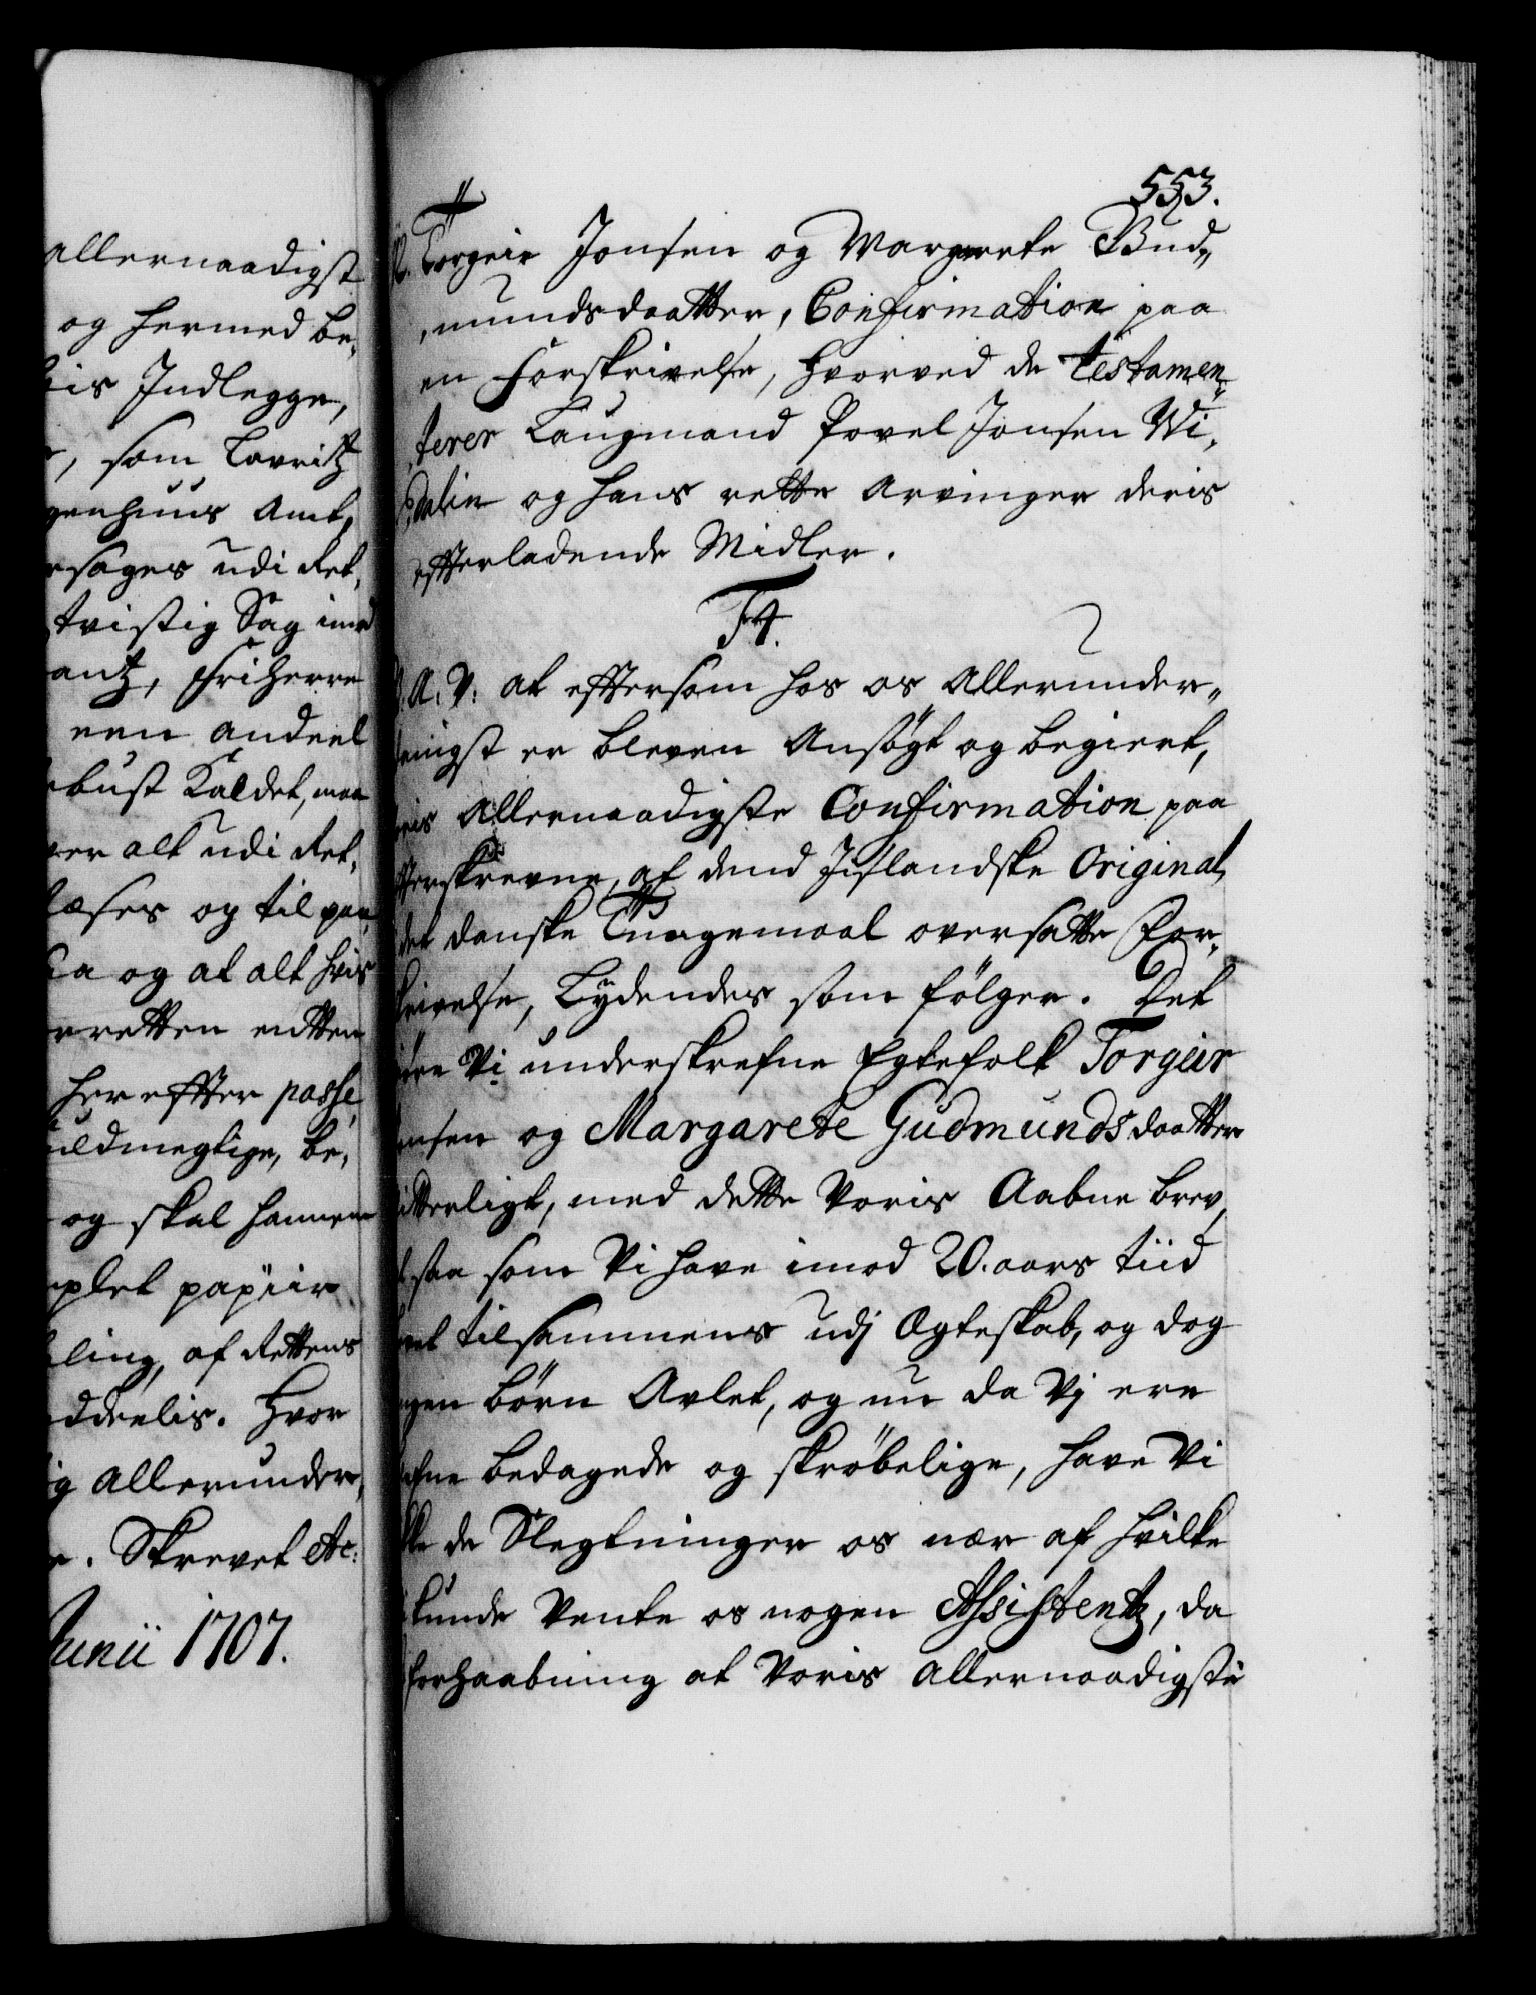 allernaadigst
og hermed be,
is Indlegge,
som Lavritz
genhuus Amt,
rsages udi Ret,
tvistig Sag imod
antz, Friherre
een andeel
bust Kaldet, maa
er alt udi Ret,
læses og til paa,
a og at alt hvis
rretten rætten
her effter passe,
uldmegtige, be,
og skal hannem
plet papiir
ling, af Rettens
ddeelis. Hvor
g allerunder,
Skrevet etc:
Junii 1707.
553.
Torgeir Jonsen og Margrete Gud„
„mundsdaatter, Confirmation paa
en Forskrivelse, hvorved de Testamen„
„terer Laugmand Povel Jonsen Wi„
„dalin og hans rette Arvinger deris
effterladende Midler.
F4.
G. A. V. at efftersom hos os Allerunder„
danigst er bleven Ansøgt og begieret,
Voris Allernaadigste Confirmation paa
effterskrevne, af dend Jislandske Original,
det danske Tungemaal oversatte For„
skrivelse, Lydendes som følger. Det
giøre Vi underskrefne Egtefolk Torgeir
Jonsen og Margarete Gudmundsdaatter
vitterligt, med dette Voris Aabne brev,
at saa som Vi have imod 20. aars tiid
levet tilsammens udj Ægteskab, og dog
ingen børn Avlet, og nu da Vj ere
blefne bedagede og skrøbelige, have Vi
ikke de Slegtninger os nær af hvilke
Vi kunde Vente os nogen Assistentz, da
i forhaabning at Voris Allernaadigste